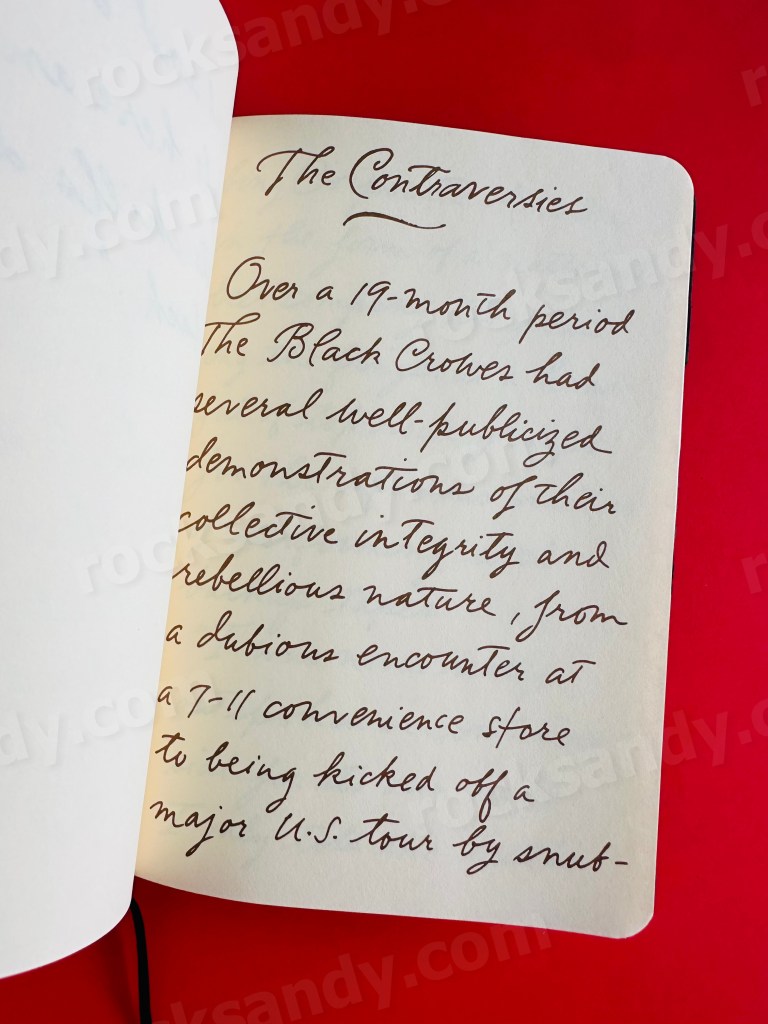 The Contraversies
Over a 19-month period
The Black Crowes had
several well-publicized
demonstrations of their
collective integrity and
rebellious nature, from
a dubious encounter at
a 7-11 convenience store
to being kicked off a
major U.S. tour by snub-
rocksandy.com